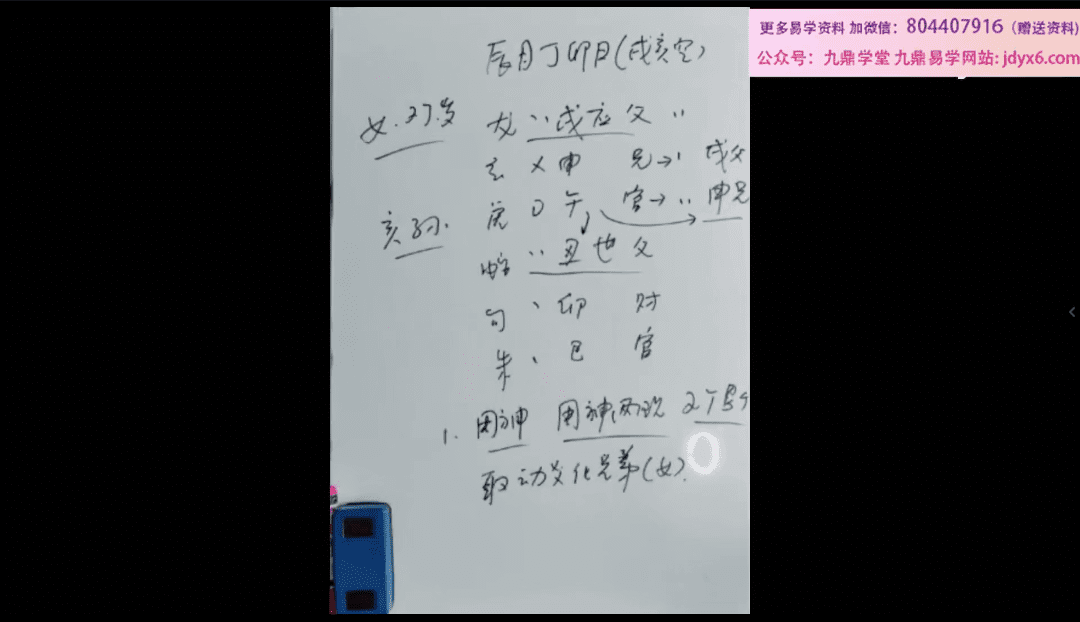 更多易学资料 加微信：804407916（赠送资料）
公众号：九鼎学堂 九鼎易学网站: jdyx6.com
辰月丁卯日(戌亥空)
女.27.岁
龙 '' 戌 应 父 ''
玄 X 申 兄→' 戌父
虎 O 午 官→'' 申兄
亥孙.
'' 丑 世 父
句 ' 卯 财
朱 ' 巳 官
1. 用神 用神两现
取动爻化兄弟(女).